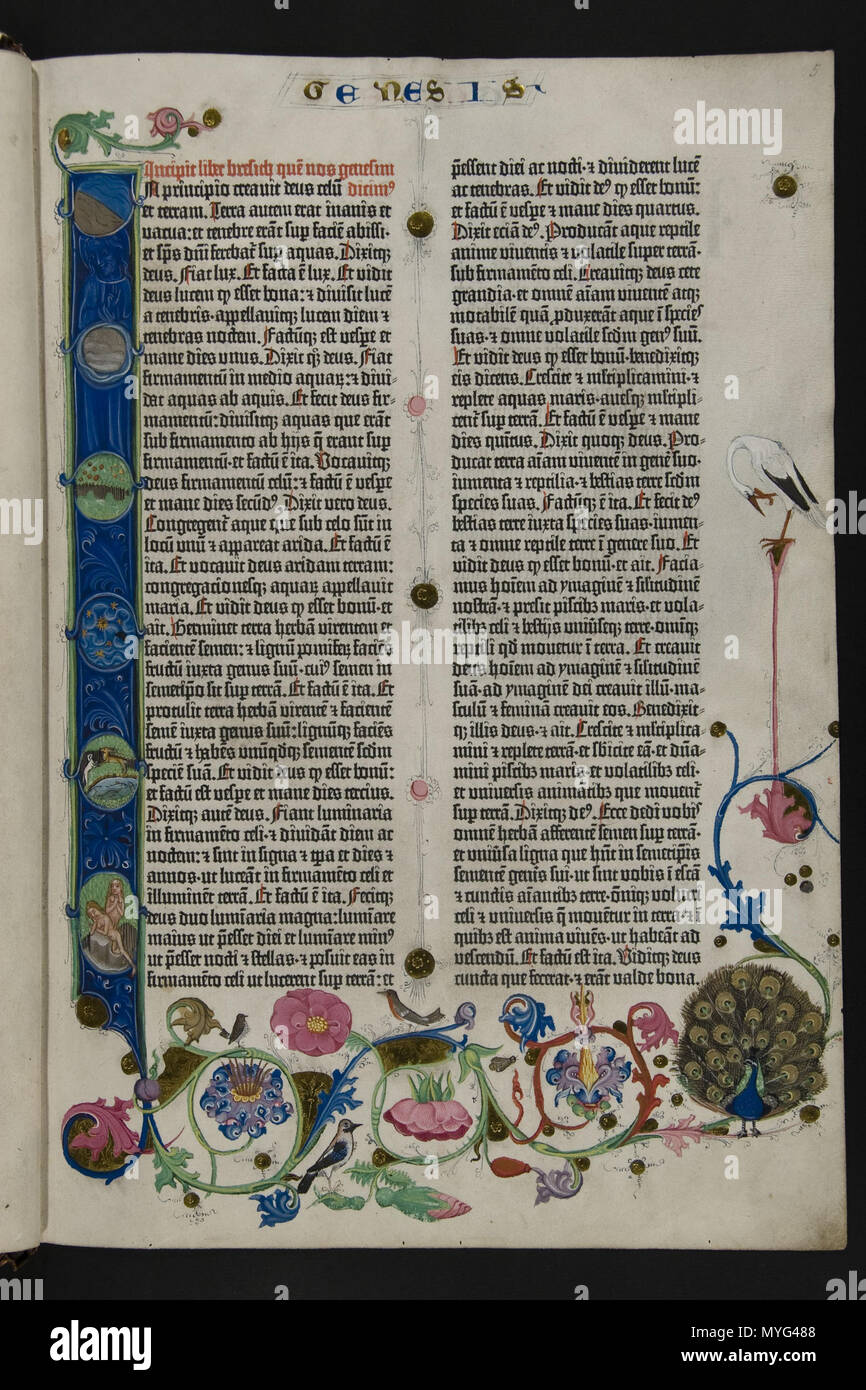 GENESIS
5
Incipit liber bresich quē nos genesim
In principio creavit deus celū dicimꝰ
et terram. Terra autem erat inanis et
vacua: et tenebre erāt sup faciē abissi:
et spūs dn̄i ferebat̄ sup aquas. Dixitqꝫ
deus. Fiat lux. Et facta ē lux. Et vidit
deus lucem ꝙ esset bona: ⁊ divisit lucē
a tenebris. appellavitqꝫ lucem diem ⁊
tenebras noctem. Factūqꝫ est vespe et
mane dies unus. Dixit qꝫ deus. Fiat
firmamentū in medio aquaꝝ: ⁊ divi-
dat aquas ab aquis. Et fecit deus fir-
mamentū: divisitqꝫ aquas que erāt
sub firmamento ab hijs q̄ erant sup
firmamentū: et factū ē ita. Vocavitqꝫ
deus firmamentū celū: ⁊ factū ē vespe
et mane dies secūdꝰ. Dixit vero deus.
Congregent̄ aque que sub celo sūt in
locū unū ⁊ appareat arida. Et factū ē
ita. Et vocavit deus aridam terram:
congregacionesqꝫ aquaꝝ appellavit
maria. Et vidit deus ꝙ esset bonū. et
ait. Germinet terra herbā virentem et
facientē semen: ⁊ lignū pomiferꝫ faciēs
fructū iuxta genus suū: cuiꝰ semen in
semetipso sit sup terrā. Et factū ē ita. Et
protulit terra herbā virentē ⁊ facientē
semē iuxta genus suū: lignūqꝫ faciēs
fructū ⁊ habēs unūqdqꝫ sementē scdm
speciē suā. Et vidit deus ꝙ esset bonū:
et factū est vespe et mane dies tercius.
Dixitqꝫ autē deus. Fiant luminaria
in firmamēto celi. ⁊ dividāt diem ac
noctem: ⁊ sint in signa ⁊ tpa et dies ⁊
annos. ut luceāt in firmamēto celi et
illuminēt terrā. Et factū ē ita. Fecitqꝫ
deus duo lumīaria magna: lumīare
maius ut pesset diei et lumīare minꝰ
ut pesset nocti ⁊ stellas. ⁊ posuit eas in
firmamēto celi ut lucerent sup terrā: et
pessent diei ac nocti. ⁊ dividerent lucē
ac tenebras. Et vidit deꝰ ꝙ esset bonū:
et factū ē vespe ⁊ mane dies quartus.
Dixit eciā deꝰ. Producāt aque reptile
anime viventis ⁊ volatile super terrā.
sub firmamēto celi. Creavitqꝫ deus cete
grandia. et omnē aīam viventē atqꝫ
motabilē quā pduxerāt aque ī specieˢ
suas. ⁊ omne volatile scdm genꝰ suū.
Et vidit deus ꝙ esset bonū. benedixitqꝫ
eis dicens. Crescite ⁊ mltiplicamini. ⁊
replete aquas maris. avesqꝫ mltipli-
cent̄ sup terrā. Et factū ē vespe ⁊ mane
dies quītus. Dixit quoqꝫ deus. Pro-
ducat terra aīam viventē in genē suo.
iumenta ⁊ reptilia. ⁊ bestias terre scdm
species suas. Factūqꝫ ē ita. Et fecit deꝰ
bestias terre iuxta species suas. iumen-
ta ⁊ omne reptile terre ī genere suo. Et
vidit deus ꝙ esset bonū. et ait. Facia-
mus hoīem ad ymaginē ⁊ silitudinē
nostrā. ⁊ presit piscibꝫ maris. et vola-
tilibꝫ celi ⁊ bestijs universeqꝫ terre. omīqꝫ
reptili qd movetur ī terra. Et creavit
deus hoīem ad ymaginē ⁊ silitudinē
suā. ad ymaginē dei creavit illū. ma-
sculū ⁊ feminā creavit eos. Benedixit-
qꝫ illis deus. ⁊ ait. Crescite ⁊ mltiplica
mini ⁊ replete terrā. et sbicite eā. et dn̄a-
mini piscibꝫ maris. et volatilibꝫ celi.
et universis animātibꝫ que movent̄
sup terrā. Dixitqꝫ deꝰ. Ecce dedi vobiˢ
omnē herbā afferentē semen sup terrā.
et univsa ligna que hn̄t in semetipsis
sementē genis sui. ut sint vobis ī escā
⁊ cunctis aīantibꝫ terre. omīqꝫ volucri
celi ⁊ universis q̄ movētur in terra. ⁊ ī
quibꝫ est anima vivēs. ut habeāt ad
vescendū. Et factū est ita. Viditqꝫ deus
cuncta que fecerat. ⁊ erāt valde bona.
alamy
Image ID: MYG488
www.alamy.com